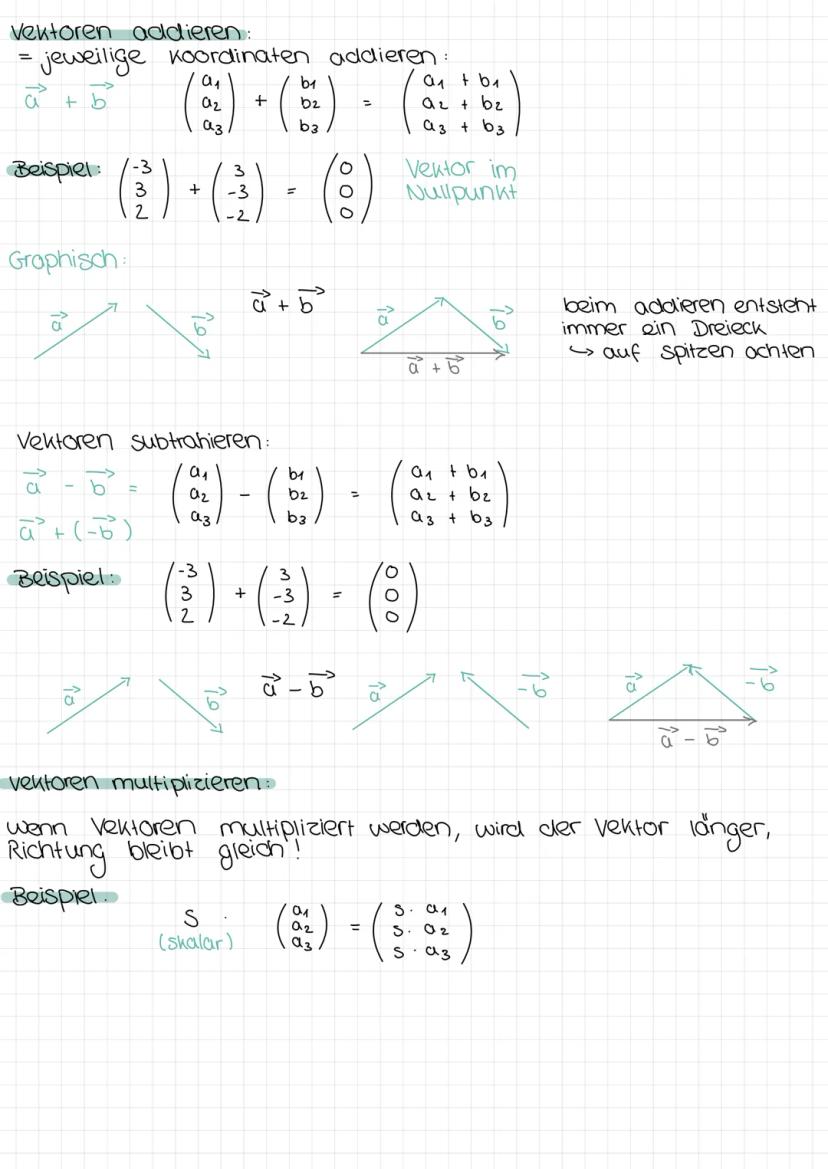 Vektoren addieren:
= jeweilige Koordinaten addieren:
a⃗ + b⃗ (a1 a2 a3) + (b1 b2 b3) = (a1 + b1 a2 + b2 a3 + b3)
Beispiel: (-3 3 2) + (3 -3 -2) = (0 0 0) Vektor im Nullpunkt
Graphisch:
a⃗ b⃗ a⃗ + b⃗ a⃗ b⃗ a⃗ + b⃗
beim addieren entsteht
immer ein Dreieck
↳ auf Spitzen achten
Vektoren subtrahieren:
a⃗ - b⃗ = (a1 a2 a3) - (b1 b2 b3) = (a1 + b1 a2 + b2 a3 + b3)
a⃗ + (-b⃗)
Beispiel: (-3 3 2) + (3 -3 -2) = (0 0 0)
a⃗ b⃗ a⃗ - b⃗ a⃗ -b⃗ a⃗ -b⃗
a⃗ - b⃗
Vektoren multiplizieren:
wenn Vektoren multipliziert werden, wird der Vektor länger,
Richtung bleibt gleich!
Beispiel.
S · (a1 a2 a3) = (s · a1 s · a2 s · a3)
(skalar)